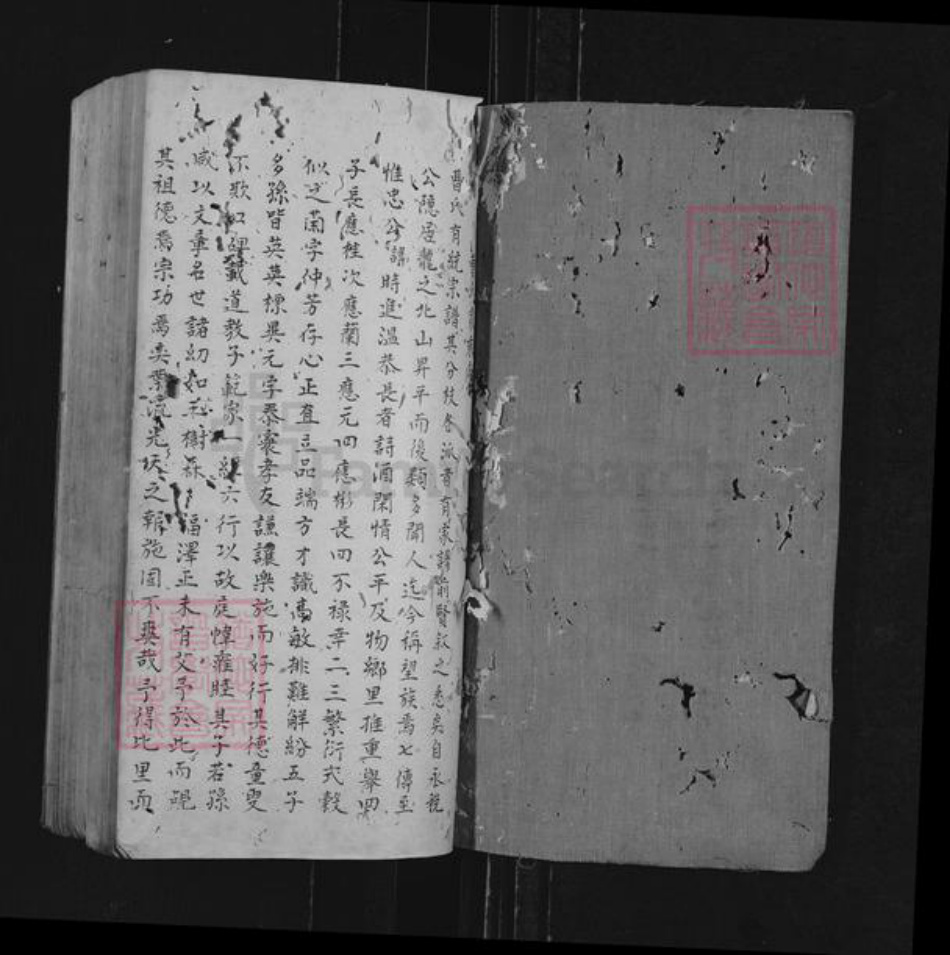 曹氏有統宗譜其分枝各派者有家譜前賢叙之悉矣自永税
公隱居龍之北山昇平而後類多聞人迄今稱望族焉七傳至
惟忠公諱時進溫恭長者詩酒閑情公平及物鄉里推重舉四
子長應桂次應蘭三應元四應彬長四不祿幸二三繁衍式穀
似之蘭字仲芳存心正直立品端方才識高敏排難解紛五子
多孫皆英英標異元字泰寰孝友謙讓樂施而好行其德童叟
不欺口碑載道教子範家一經六行以故庭幃雍睦其子若孫
咸以文章名世諸幼如芝樹森福澤正未有艾予於此而覘
其祖德焉宗功焉奕葉流光天之報施固不爽哉予得比里而